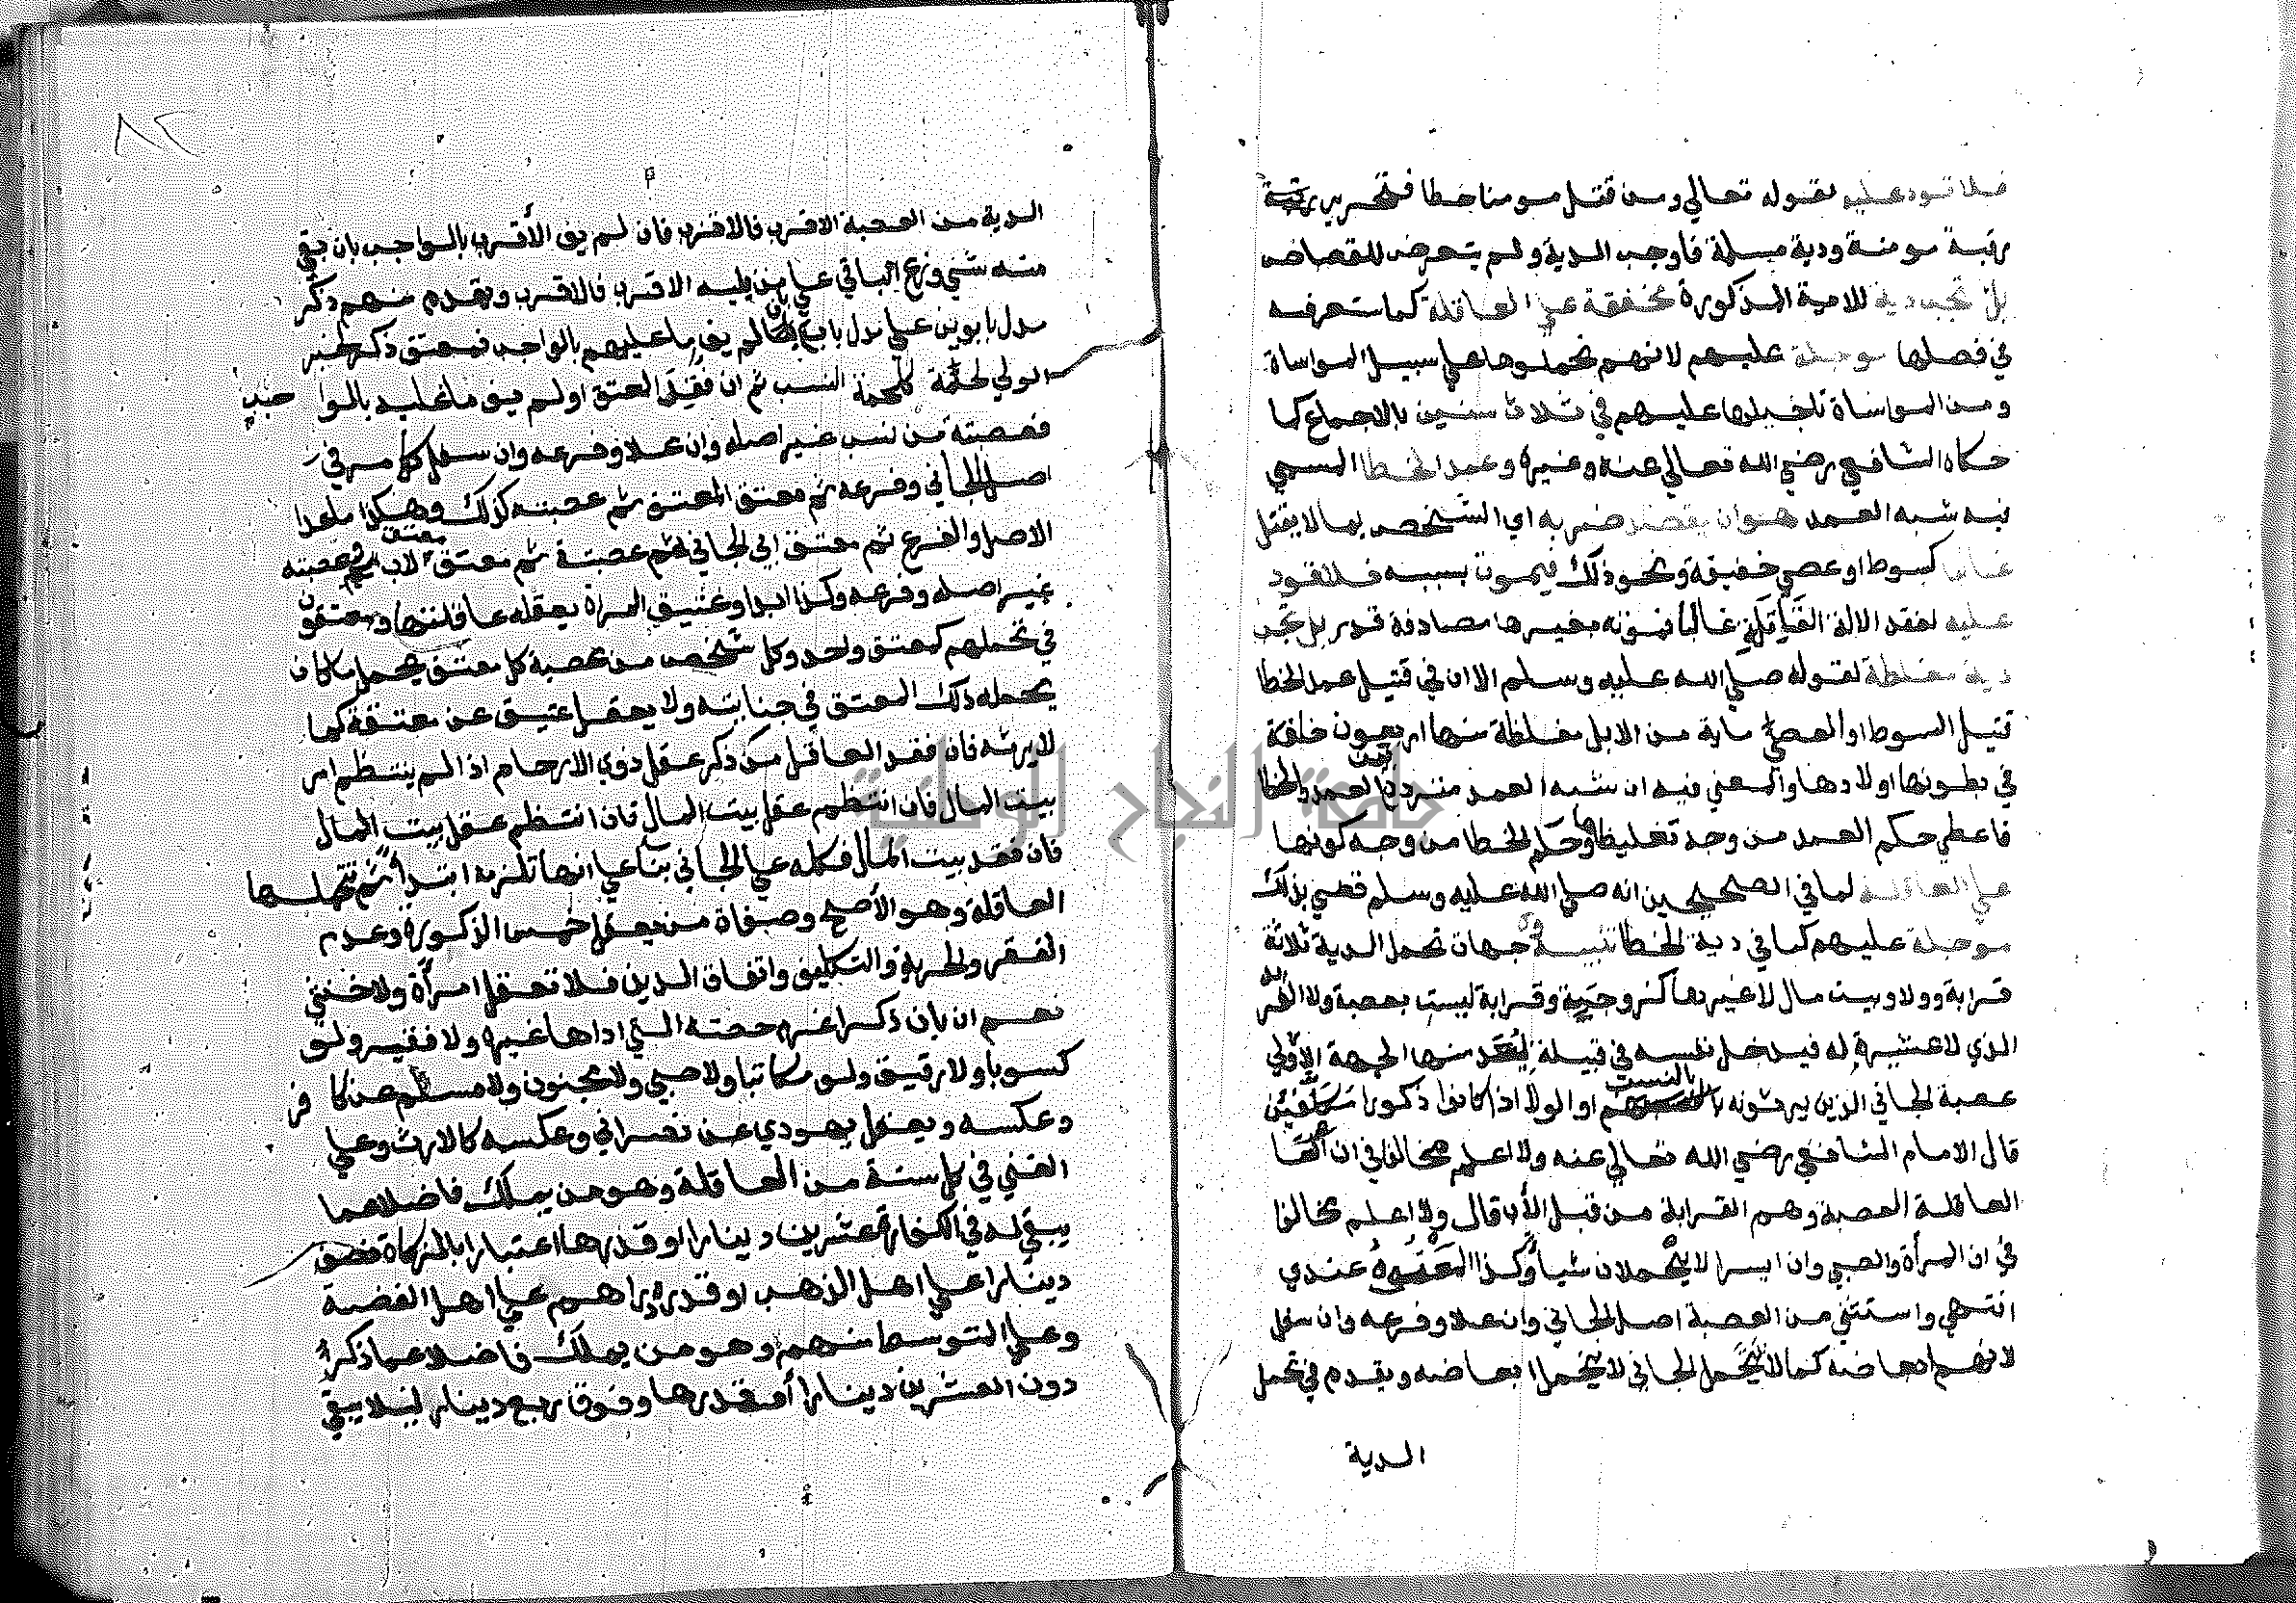 فلا قود عليه لقوله تعالي ومن قتل مومنا خطا فتحرير رقبة
رقبة مومنة ودية مسلمة فاوجب الدية ولم يتعرض للقصاص
بل تجب دية للاية المذكورة مخففة علي العاقلة كما ستعرفه
في فصلها موجلة عليهم لانهم تحملوها علي سبيل المواساة
ومن المواساة تاجيلها عليهم في ثلاث سنين بالاجماع كما
حكاه الشافعي رضي الله تعالي عنه وغيره وعمد الخطا المسمي
بنه شبه العمد هو ان يقصد ضربه اي الشخص بما لا يقتل
غالبا كسوط او عصي خفيفة ونحو ذلك فيموت بسببه فلا قود
عليه لفقد الالة القاتلة غالبا فموته بغيرها مصادفة قدر بل تجب
دية مغلظة لقوله صلي الله عليه وسلم الا ان في قتيل عمد الخطا
قتيل السوط او العصي ماية من الابل مغلظة منها اربعون خلفة
في بطونها اولادها والمعني فيه ان شبه العمد متردد بين العمد والخطا
فاعطي حكم العمد من وجه تغليظها وحكم الخطا من وجه كونها
علي العاقلة لما في الصحيحين انه صلي الله عليه وسلم قضي بذلك
موجلة عليهم كما في دية الخطا تنبيه جهات تحمل الدية ثلاثة
قرابة وولا وبيت مال لا غيرها كزوجية وقرابة ليست بعصبة ولا الفر
الذي لا عشيرة له فيدخل نفسه في قبيلة ليعقد منها الجهة الاولي
عصبة الجاني الذين يرثونه بالنسب او الولا اذا كانوا ذكورا مكلفين
قال الامام الشافعي رضي الله تعالي عنه ولا اعلم مخالفا في ان
العاقلة العصبة وهم القرابة من قبل الأب قال ولا اعلم مخالفا
في ان المرأة والصبي وان ايسرا لا يحملان شيأ وكذا المعتوه عندي
انتهي واستثني من العصبة اصل الجاني وان علا وفرعه وان سفل
لانهم ابعاضه كما لا يتحمل الجاني لا يتحمل ابعاضه ويقدم في تحمل
الدية
٨٢
الدية من العصبة الاقرب فالاقرب فان لم يف الأقرب بالواجب بان بقي
منه شي وزع الباقي علي من يليه الاقرب فالاقرب ويقدم منهم ذكر
مدل بابوين علي مدل باب فان لم يف ما عليهم بالواجب فمعتق ذكر لخبر
الولي لحمة كلحمة النسب ثم ان فقد المعتق او لم يف ما عليه بالوا
فعصبته من نسب غير اصله وان علا وفرعه وان سفل كما مر في
اصل الجاني وفرعه ثم معتق المعتق ثم عصبته كذلك وهكذا ما عدا
الاصل والفرع ثم معتق ابي الجاني ثم عصبته ثم معتق معتق الاب ثم عصبته
غير اصله وفرعه وكذا ابدا وعتيق المراة يعقله عاقلتها ومعتقون
في تحملهم كمعتق واحد وكل شخص من عصبة كل معتق يحمل ما كان
يحمله ذلك المعتق في جنايته ولا يعقل عتيق عن معتقه كما
لا يرثه فان فقد العاقل من ذكر عقل ذوي الارحام اذا لم ينتظم امر
بيت المال فان انتظم عقل بيت المال فان انتظم عقل بيت المال
فان فقد بيت المال فكله علي الجاني بناً علي انها تلزمه ابتدأ ثم تتحملها
العاقلة وهو الأصح وصفاة من يعقل خمس الذكورة وعدم
الفقر والحرية والتكليف واتفاق الدين فلا تعقل امرأة ولا خنثي
نعم ان بان ذكرا غرم حصته التي اداها غيره ولا فقير ولو
كسوبا ولا رقيق ولو مكاتبا ولا صبي ولا مجنون ولا مسلم عن كافر
وعكسه ويعقل يهودي عن نصراني وعكسه كالارث وعلي
الغني في كل سنة من العاقلة وهو من يملك فاضلا عما
يبقي له في الكفارة عشرين دينارا او قدرها اعتبارا بالزكاة نصف
دينارا علي اهل الذهب او قدره دراهم علي اهل الفضة
وعلي المتوسط منهم وهو من يملك فاضلا عما ذكر
دون العشرين دينارا أو قدرها وفوق ربع دينار ليلا يبقي